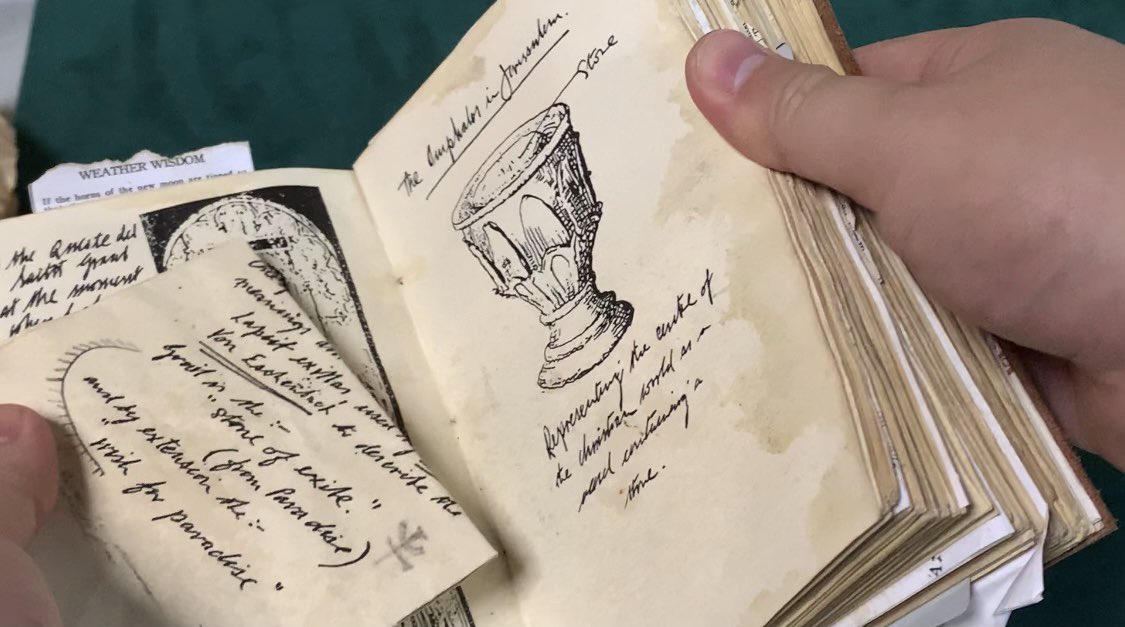 WEATHER WISDOM
If the horns of the new moon are tipped
the Queste del
Saint Graal
at the moment
meaning
Lapsit exillas, used by
Von Eschenbach to describe the
Grail is the :-
"stone of exile."
(from Paradise)
and by extension the :-
"wish for paradise"
The Omphalos in Jerusalem.
Stone
Representing the centre of
the christian world as a
vessel containing a
stone.